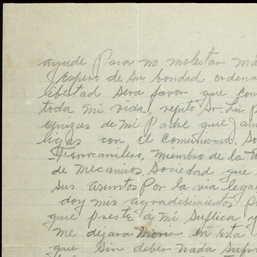 ayude Para no molestar ma
Espero de su bondad ordena
libertad sera favor que con
toda mi vida, repito Sr. Luis
de mi Padre que jam
ligas con el Comunismo so
Ferrocarrilero, miembro de la
de mecanicos, Sociedad que
sus asuntos Por la via legal
doy mis agradesimientos
que preste a mi suplica y
me dejara Morir en esta
que sin deber nada sufro